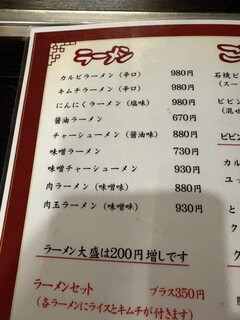 ラーメン
カルビラーメン（辛口） 980円
キムチラーメン（辛口） 980円
にんにくラーメン（塩味） 980円
醤油ラーメン 670円
チャーシューメン（醤油味） 880円
味噌ラーメン 730円
味噌チャーシューメン 930円
肉ラーメン（味噌味） 880円
肉玉ラーメン（味噌味） 930円
ラーメン大盛は200円増しです
ラーメンセット プラス350円
（各ラーメンにライスとキムチが付きます）
石焼ビ
（スー
ビビン